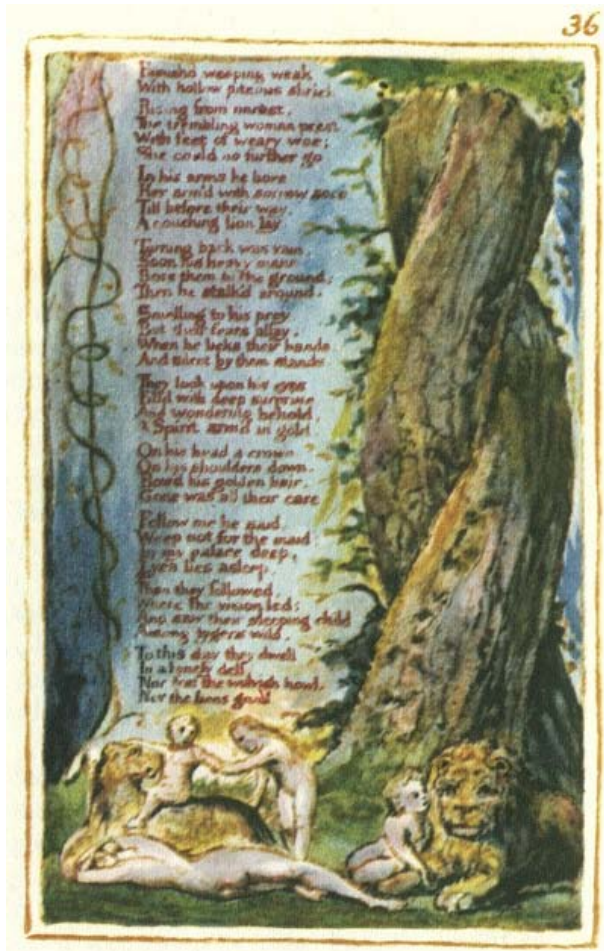 36
Famish'd weeping weak
With hollow piteous shriek
Rising from unrest,
The trembling woman prest
With feet of weary woe;
She could no further go
In his arms he bore
Her arm'd with sorrow sore
Till before their way,
A couching lion lay.
Turning back was vain,
Soon his heavy mane
Bore them to the ground;
Then he stalk'd around,
Smelling to his prey
But their fears allay,
When he licks their hands
And silent by them stands
They look upon his eyes
Fill'd with deep surprise
And wondering behold,
A Spirit arm'd in gold
On his head a crown
On his shoulders down,
Flow'd his golden hair.
Gone was all their care
Follow me he said,
Weep not for the maid
In my palace deep,
Lyca lies asleep.
Then they followed
Where the vision led:
And saw their sleeping child
Among tygers wild.
To this day they dwell
In a lonely dell
Nor fear the wolvish howl,
Nor the lions growl